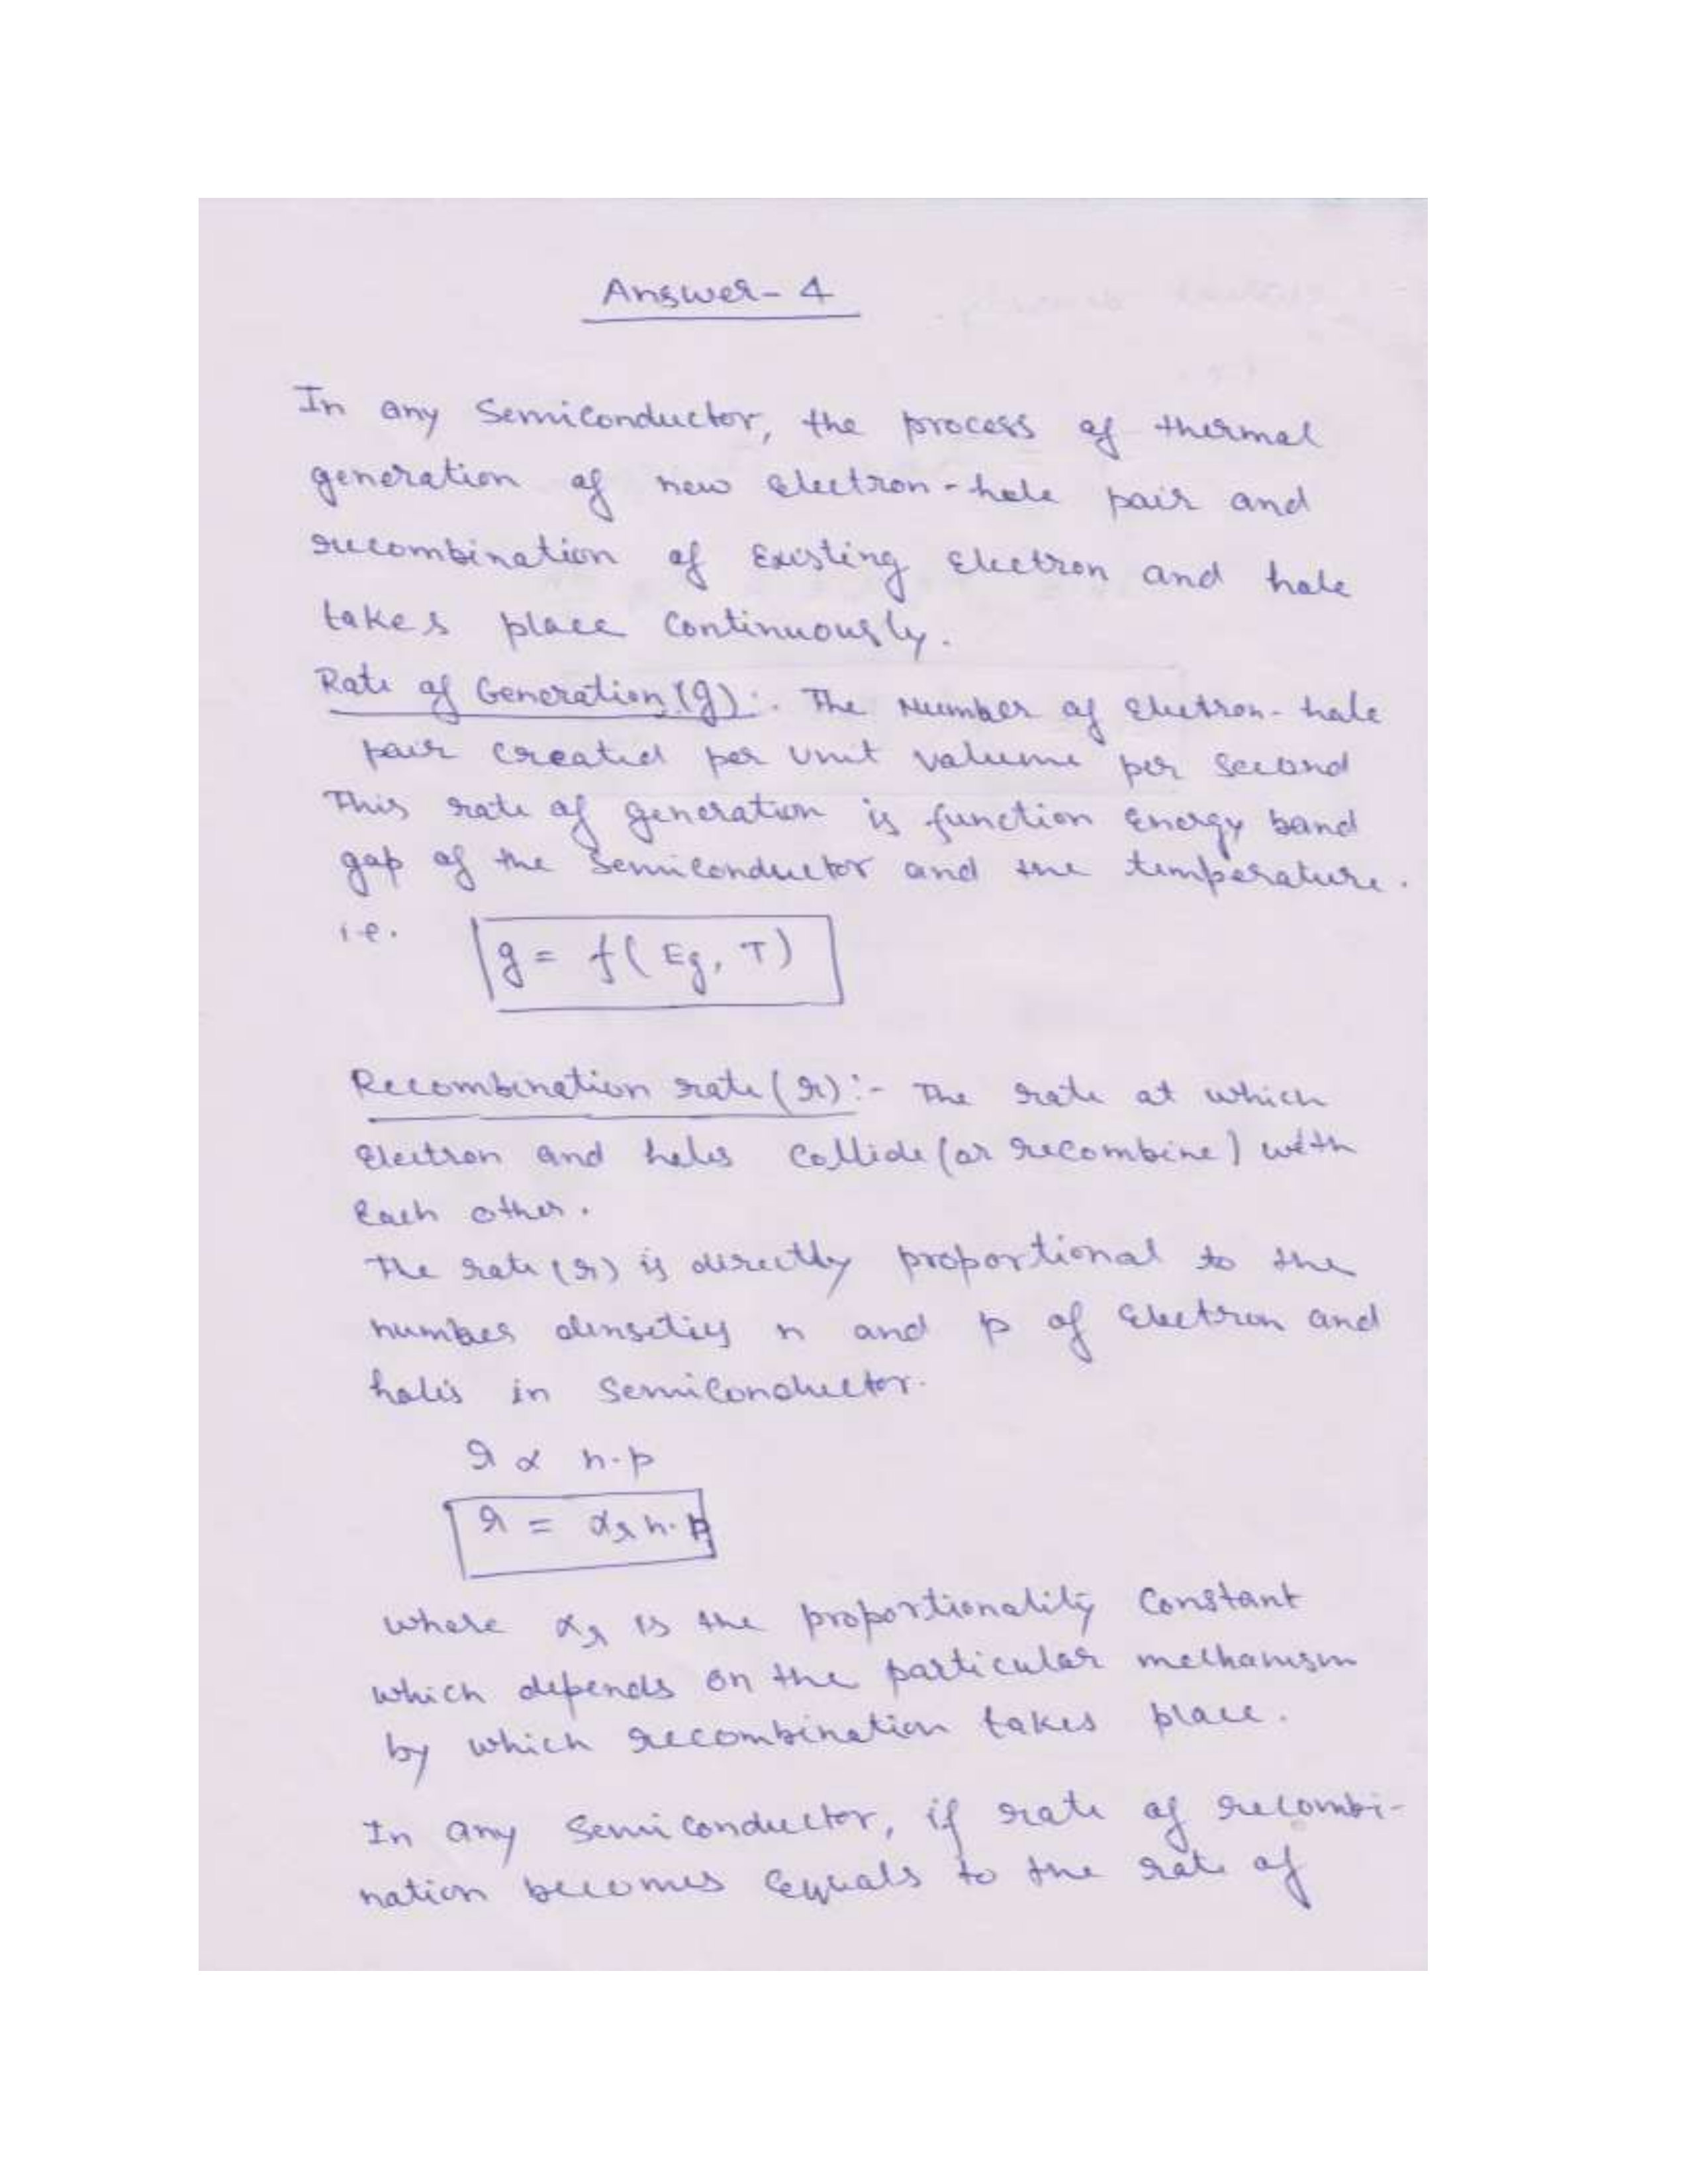 Answer - 4
In any Semiconductor, the process of thermal
generation of new electron-hole pair and
recombination of Existing Electron and hole
takes place continuously.
Rate of Generation (g) :. The Number of electron-hole
pair created per unit volume per second
This rate of generation is function Energy band
gap of the Semiconductor and the temperature.
i.e. g = f(Eg, T)
Recombination rate (r) :- The rate at which
electron and holes collide (or recombine) with
Each other.
The rate (r) is directly proportional to the
number densities n and p of Electron and
holes in Semiconductor.
r ∝ n.p
r = αr n.p
where αr is the proportionality Constant
which depends on the particular mechanism
by which recombination takes place.
In any Semiconductor, if rate of recombi-
nation becomes Equals to the rate of